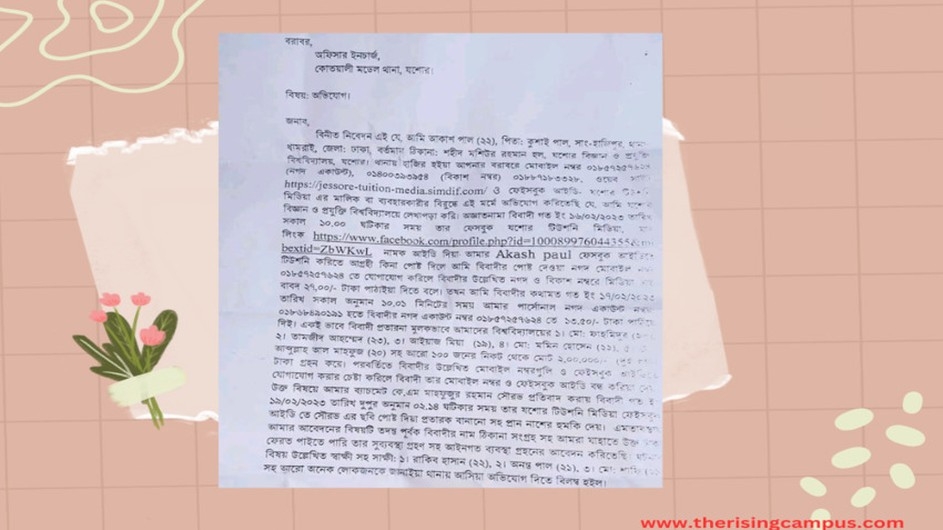 বরাবর,
অফিসার ইনচার্জ,
কোতয়ালী মডেল থানা, যশোর।
বিষয়: অভিযোগ।
জনাব,
বিনীত নিবেদন এই যে, আমি আকাশ পাল (২২), পিতা: কুশাই পাল, সাং-হাজিপুর, থানা-
ধামরাই, জেলা: ঢাকা, বর্তমান ঠিকানা: শহীদ মশিউর রহমান হল, যশোর বিজ্ঞান ও প্রযুক্তি
বিশ্ববিদ্যালয়, যশোর। থানায় হাজির হইয়া আপনার বরাবরে মোবাইল নম্বর ০১৮৫৭২৫৭৬২৪
(নগদ একাউন্ট), ০১৪০০৩৯৩৯৫৪ (বিকাশ নম্বর) ০১৮৮৭১৮৩৩২৮, ওয়েব
https://jessore-tuition-media.simdif.com/ ও ফেইসবুক আইডি- যশোর
মিডিয়া এর মালিক বা ব্যবহারকারীর বিরুদ্ধে এই মর্মে অভিযোগ করিতেছি যে, আমি যশোর
বিজ্ঞান ও প্রযুক্তি বিশ্ববিদ্যালয়ে লেখাপড়া করি। অজ্ঞাতনামা বিবাদী গত ইং ১৬/০২/২০২৩ তারিখ
সকাল ১০.০০ ঘটিকার সময় তার ফেসবুক যশোর টিউশনি মিডিয়া, যার
লিংক https://www.facebook.com/profile.php?id=100089976044355&
bextid=ZbWKwL নামক আইডি দিয়া আমার Akash paul ফেসবুক আইডিতে
টিউশনি করিতে আগ্রহী কিনা পোষ্ট দিলে আমি বিবাদীর পোষ্ট দেওয়া নগদ মোবাইল নম্বর
০১৮৫৭২৫৭৬২৪ তে যোগাযোগ করিলে বিবাদীর উল্লেখিত নগদ ও বিকাশ নম্বরে মিডিয়া
বাবদ ২৭,০০/- টাকা পাঠাইয়া দিতে বলে। তখন আমি বিবাদীর কথামত গত ইং ১৭/০২/২০২৩
তারিখ সকাল অনুমান ১০.০১ মিনিটের সময় আমার পার্সোনাল নগদ একাউন্ট নম্বর
০১৮৬৮৪৯০১৯১ হতে বিবাদীর নগদ একাউন্ট নম্বর ০১৮৫৭২৫৭৬২৪ তে ১৩,৫০/- টাকা পাঠিয়ে
দিই। একই ভাবে বিবাদী প্রতারনা মুলকভাবে আমাদের বিশ্ববিদ্যালয়ের ১। মো: ফাহমিদুর
২। তামজীদ আহম্মেদ (২৩), ৩। আইয়াজ মিয়া (১৯), ৪। মো: মমিন হোসেন (২১),
আব্দুল্লাহ আল মাহফুজ (২০) সহ আরো ১০০ জনের নিকট থেকে মোট ২,০০,০০০/-
টাকা গ্রহন করে। পরবর্তিতে বিবাদীর উল্লেখিত মোবাইল নম্বরগুলি ও ফেইসবুক আইডিতে
যোগাযোগ করার চেষ্টা করিলে বিবাদী তার মোবাইল নম্বর ও ফেইসবুক আইডি বন্ধ করিয়া
উক্ত বিষয়ে আমার ব্যাচমেট কে.এম মাহফুজুর রহমান সৌরভ প্রতিবাদ করায় বিবাদী গত
১৯/০২/২০২৩ তারিখ দুপুর অনুমান ০২.১৪ ঘটিকার সময় তার যশোর টিউশনি মিডিয়া ফেইসবুক
আইডি তে সৌরভ এর ছবি পোষ্ট দিয়া প্রতারক বানানো সহ প্রান নাশের হুমকি দেয়। এমতাবস্থায়
আমার আবেদনের বিষয়টি তদন্ত পূর্বক বিবাদীর নাম ঠিকানা সংগ্রহ সহ আমরা যাহাতে উক্ত
ফেরত পাইতে পারি তার সুব্যবস্থা গ্রহণ সহ আইনগত ব্যবস্থা গ্রহনের আবেদন করিতেছি।
বিষয় উল্লেখিত স্বাক্ষী সহ সাক্ষী: ১। রাকিব হাসান (২২), ২। অনন্ত পাল (২১), ৩। মো:
সহ আরো অনেক লোকজনকে জানাইয়া থানায় আসিয়া অভিযোগ দিতে বিলম্ব হইল।
www.therisingcampus.com